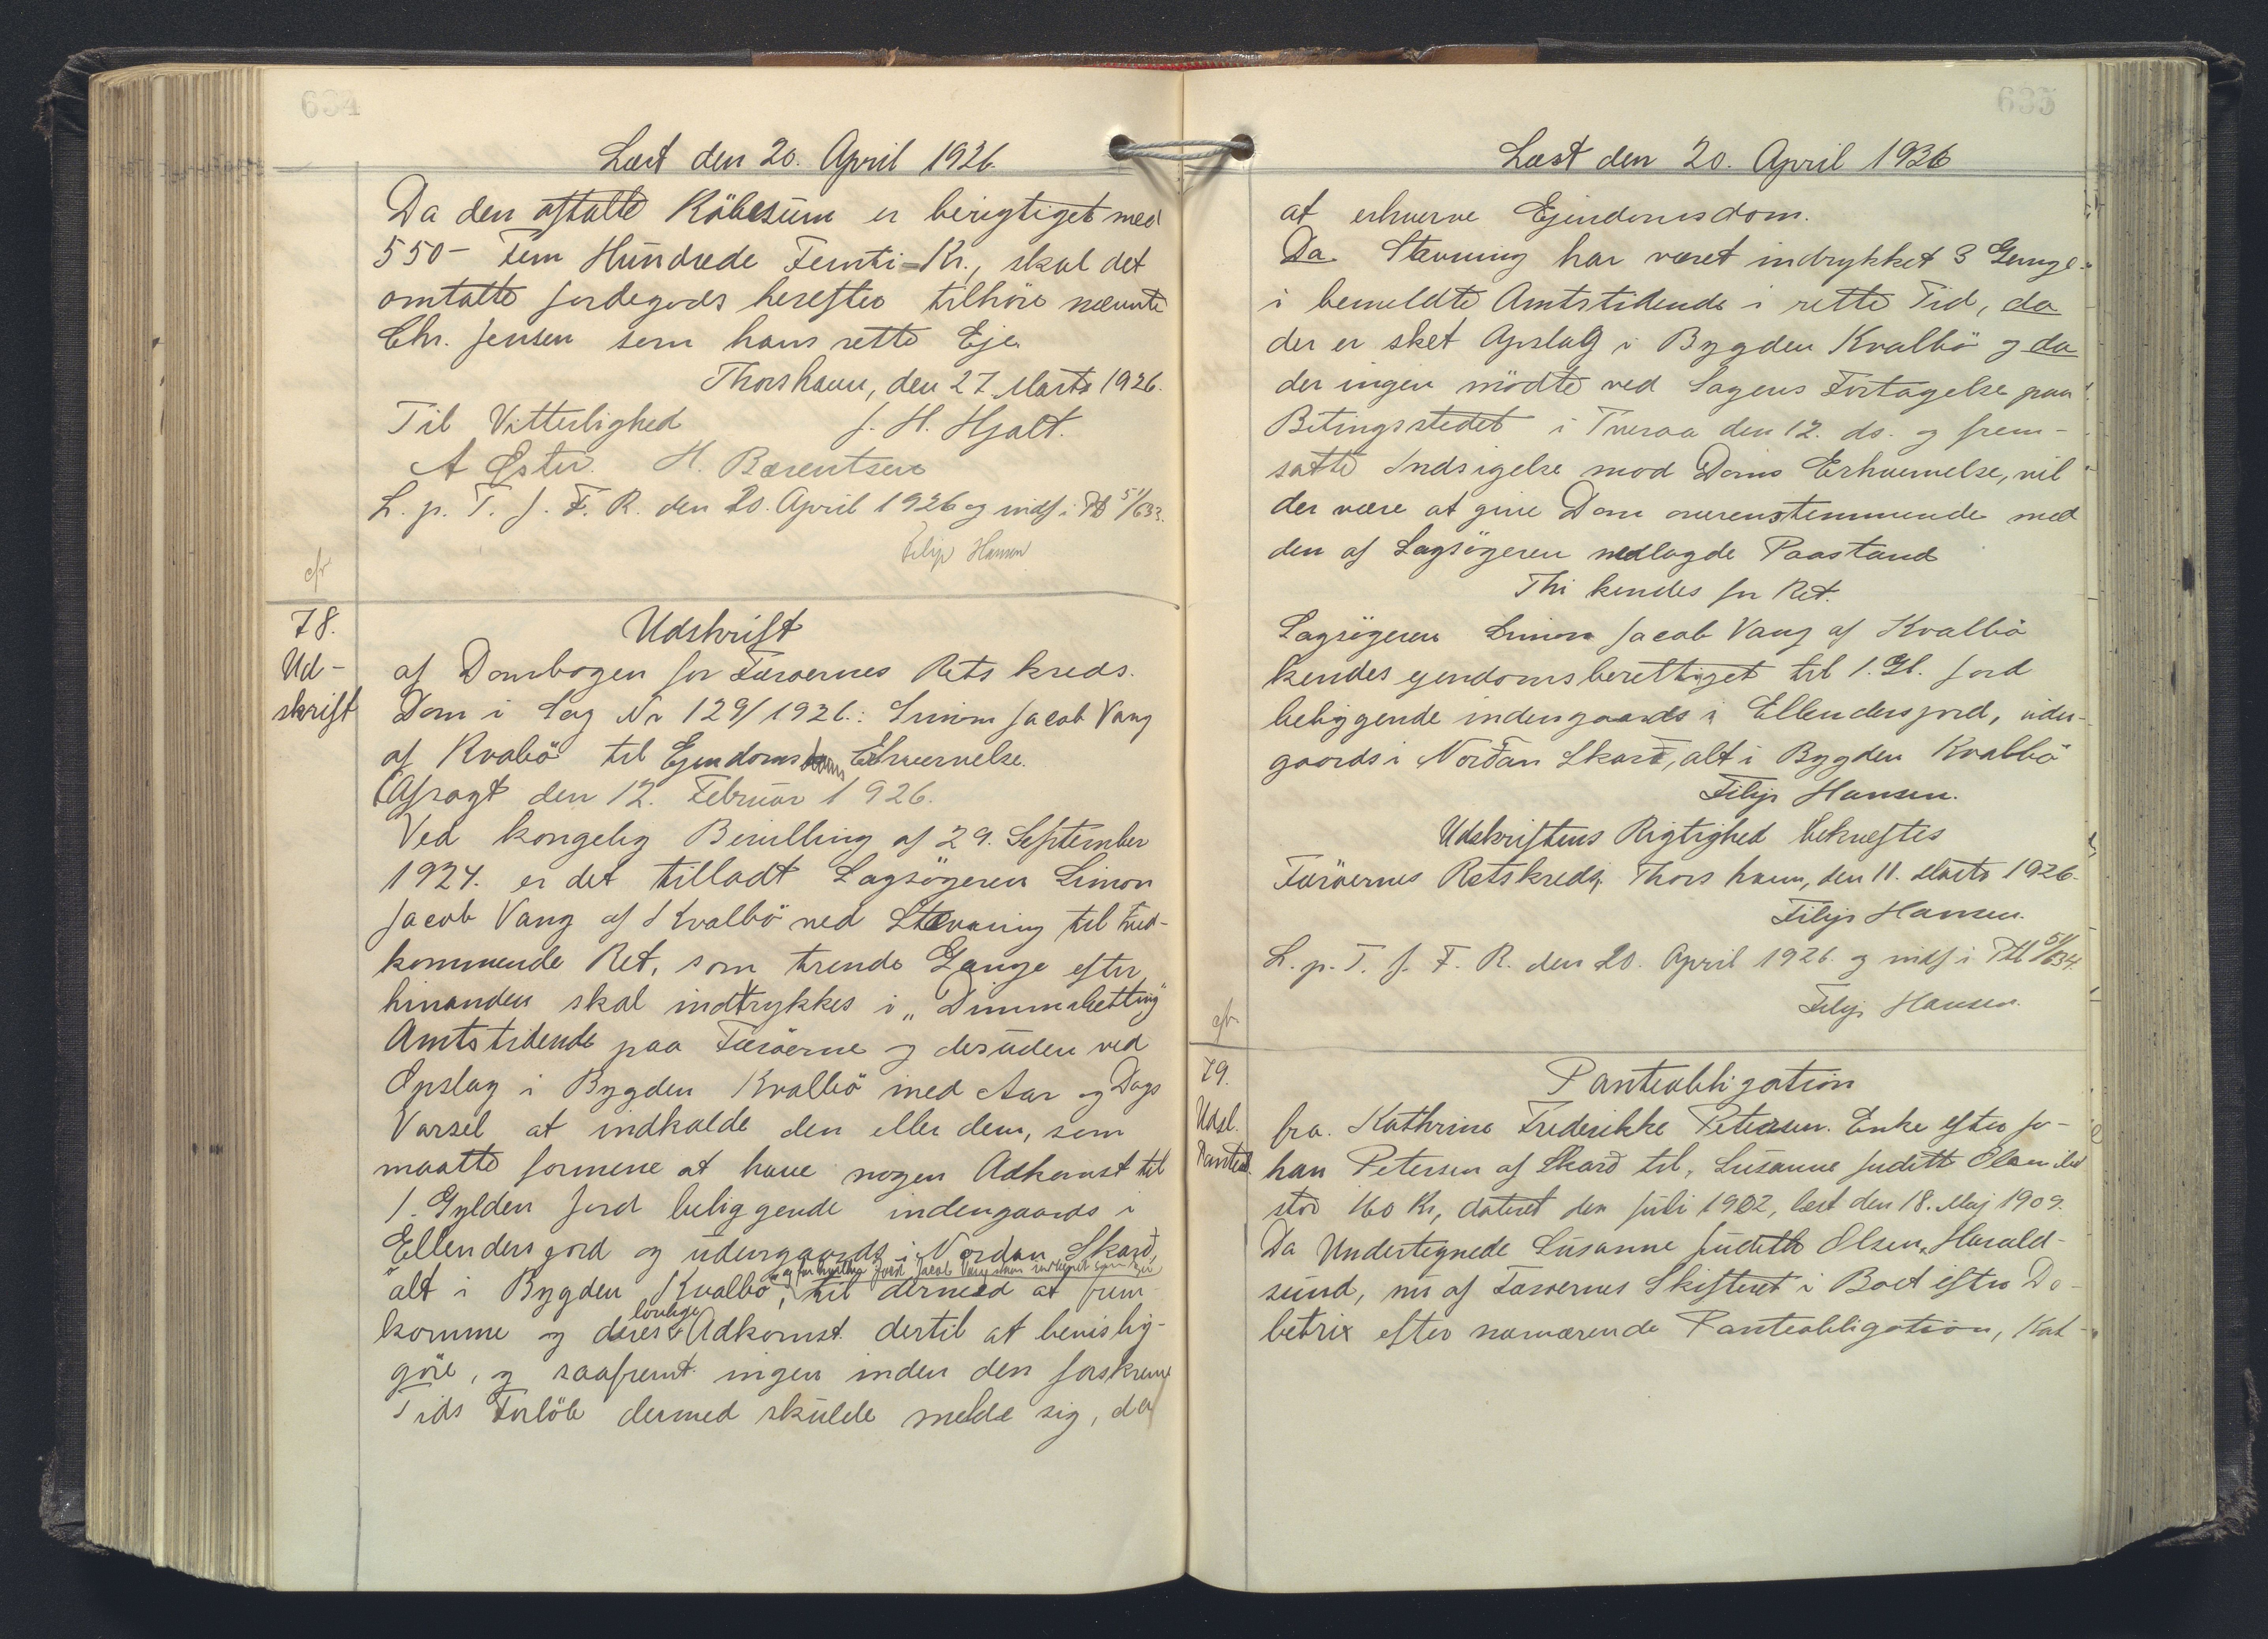 634
Læst den 20. April 1926.
Da den aftalte Köbesum er berigtiget med
550 - Fem Hundrede Femti = Kr., skal det
omtalte Jordegods herefter tilhöre nævnte
Chr. Jensen som hans rette Eje.
Thorshavn, den 27. Marts 1926.
Til Vitterlighed J. H. Hjalt.
A Øster. H. Bærentsen
L. p. T. f. F. R. den 20. April 1926 og indf i Pb 51/633.
Filip Hansen
cfr
78.
Ud-
skrift
Udskrift
af Dombogen for Færöernes Rets kreds.
Dom i Sag Nr 129/1926.: Simon Jacob Vang
af Kvalbö til Ejendomsdoms Erhvervelse.
Afsagt den 12. Februar 1926.
Ved kongelig Bevilling af 29. September
1924. er det tilladt Sagsögeren Simon
Jacob Vang af Kvalbö ved Stævning til Ved-
kommende Ret, som trende Gange efter
hinanden skal indtrykkes i „Dimmalætting"
Amtstidende paa Færöerne og desuden ved
Opslag i Bygden Kvalbö med Aar og Dags
Varsel at indkalde den eller dem, som
maatte formene at have nogen Adkomst til
1. Gylden Jord beliggende indengaards i
Ellendersjord og udengaards i Norðan Skarð,
og for hvilken Jord Jacob Vang staar indtegnet som Ejer
alt i Bygden Kvalbö, til dermed at frem-
komme og deres lovlige Adkomst dertil at bevislig-
göre, og saafremt ingen inden den forskrevne
Tids Forlöb dermed skulde melde sig, da
635
Læst den 20. April 1926
at erhverve Ejendomsdom.
Da Stævning har været indrykket 3 Gange
i bemeldte Amtstidende i rette Tid, da
der er sket Opslag i Bygden Kvalbö og da
der ingen mödte ved Sagens Fortagelse paa
Bitingsstedet i Tveraa den 12. ds. og frem-
satte Indsigelse mod Doms Erhvervelse, vil
der være at give Dom overenstemmende med
den af Sagsögeren nedlagde Paastand
Thi kendes for Ret.
Sagsögeren Simon Jacob Vang af Kvalbö
kendes ejendomsberettiget til 1. Gl. Jord
beliggende indengaards i Ellendersjord, uden-
gaards i Norðan Skarð, alt i Bygden Kvalbö
Filip Hansen.
Udskriftens Rigtighed bekræftes
Færöernes Retskreds, Thorshavn, den 11. Marts 1926.
Filip Hansen.
L. p. T. f. F. R. den 20. April 1926. og indf i Pb 51/634.
Filip Hansen.
cfr.
79.
Udsl.
Panteobl.
Panteobligation
fra. Kathrine Frederikke Petersen. Enke efter Jo-
han Petersen af Skarð til, Susanne Judith Olsen
stor 160 Kr, dateret den Juli 1902, læst den 18. Maj 1909.
Da Undertegnede Susanne Judith Olsen, Harald-
sund, nu af Færöernes Skifteret i Boet efter De-
betrix efter nærværende Panteobligation, Kat-